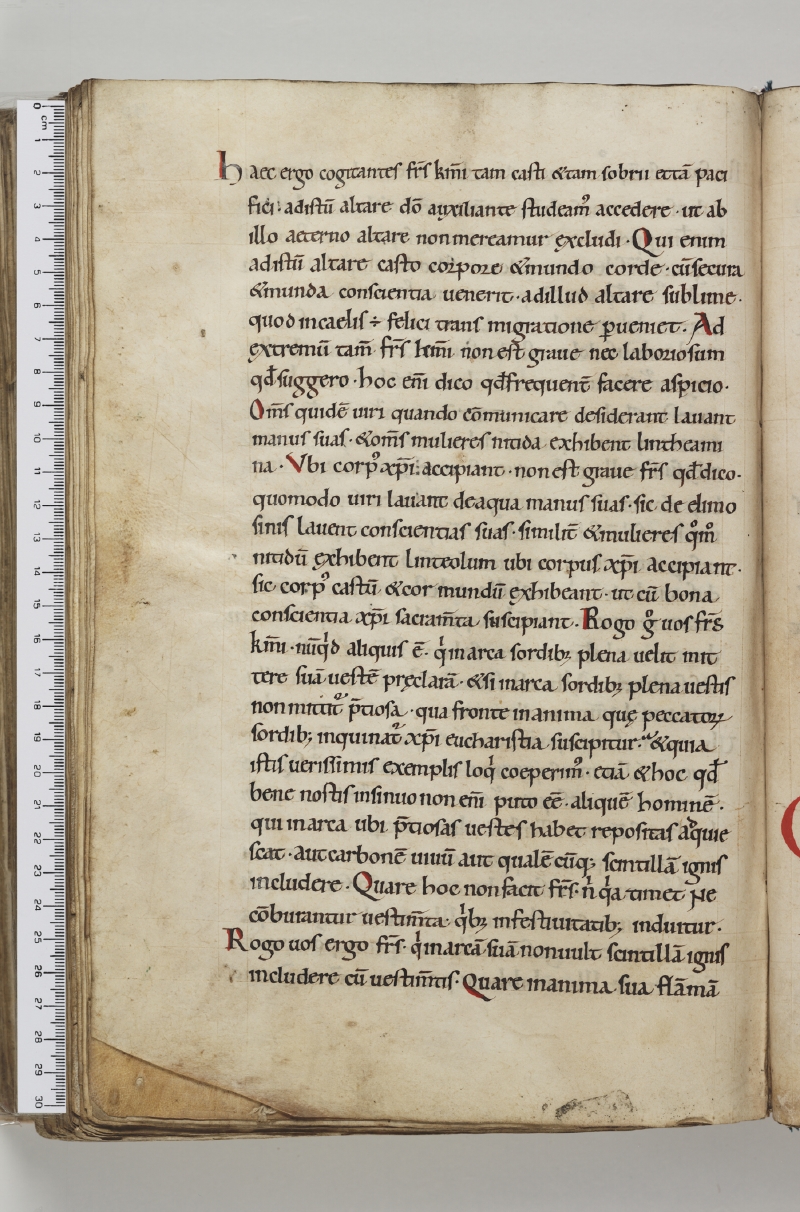 Haec ergo cogitantes fr̄s km̄i tam casti &tam sobrii et tā paci
fici· adistū altare dō auxiliante studeam᷒ accedere · ut ab
illo aeterno altare non mereamur ęxcludi · Qui enim
adistū altare casto corpore &mundo corde · cū secura
&munda conscientia uenerit · adillud altare sublime ·
quod incaelis ÷ felici trans migratione ꝑueniet · Ad
ęxtremū tam̄ fr̄s km̄i non est graue nec laboriosum
qđ suggero · hoc em̄ dico qđ frequent̄ facere aspicio ·
Om̄s quidē uiri quando cōmunicare desiderant lauant
manus suas · &om̄s mulieres nitida exhibent linteami
na · Vbi corp᷒ xp̄i accipiant · non est graue fr̄s qđ dico ·
quomodo uiri lauant deaqua manus suas · sic de elimo
sinis lauent conscientias suas · similit̄ &mulieres qͦm᷒
nitidū ęxhibent linteolum ubi corpus xp̄i accipiant ·
sic corp᷒ castū &cor mundū ęxhibeant · ut cū bona
conscientia xp̄i sacram̄ta suscipiant · Rogo gͦ uos fr̄s
km̄i · nūqͥd aliquis ē · qͥ inarca sordibꝫ plena uelit mit
tere suā uestē pręclarā · &si inarca sordibꝫ plena uestis
non mittit᷒ p̄tiosa · qua fronte inanima quę peccatoꝝ
sordibꝫ inquinat᷒ xp̄i eucharistia suscipitur · &quia
istis uerissimis exemplis loqͥ coeperim᷒ · etiā &hoc qđ
bene nostis insinuo non em̄ puto ēē · aliquē hominē ·
qui inarca ubi p̄tiosas uestes habet repositas adquie
scat · aut carbonē uiuū aut qualē cūqꝫ scintillā ignis
includere · Quare hoc non facit fr̄s · n̄ qͥa timet Ne
cōburantur uestim̄ta · qͥbꝫ infestiuitatibꝫ induitur ·
Rogo uos ergo fr̄s · qͥ inarcā suā non uult scintillā ignis
includere cū uestim̄tis · Quare inanima sua flāmā